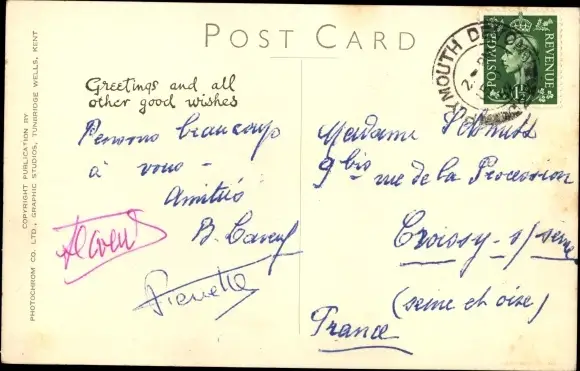 POST CARD
Greetings and all
other good wishes
Pensons beaucoup
à vous -
Amitiés
B.
Pierrette
Madame
9 bis rue de la Procession
Croissy - s/ seine
(seine et oise)
France
PLYMOUTH DEVON
POSTAGE REVENUE
COPYRIGHT PUBLICATION BY
PHOTOCHROM CO. LTD., GRAPHIC STUDIOS, TUNBRIDGE WELLS, KENT